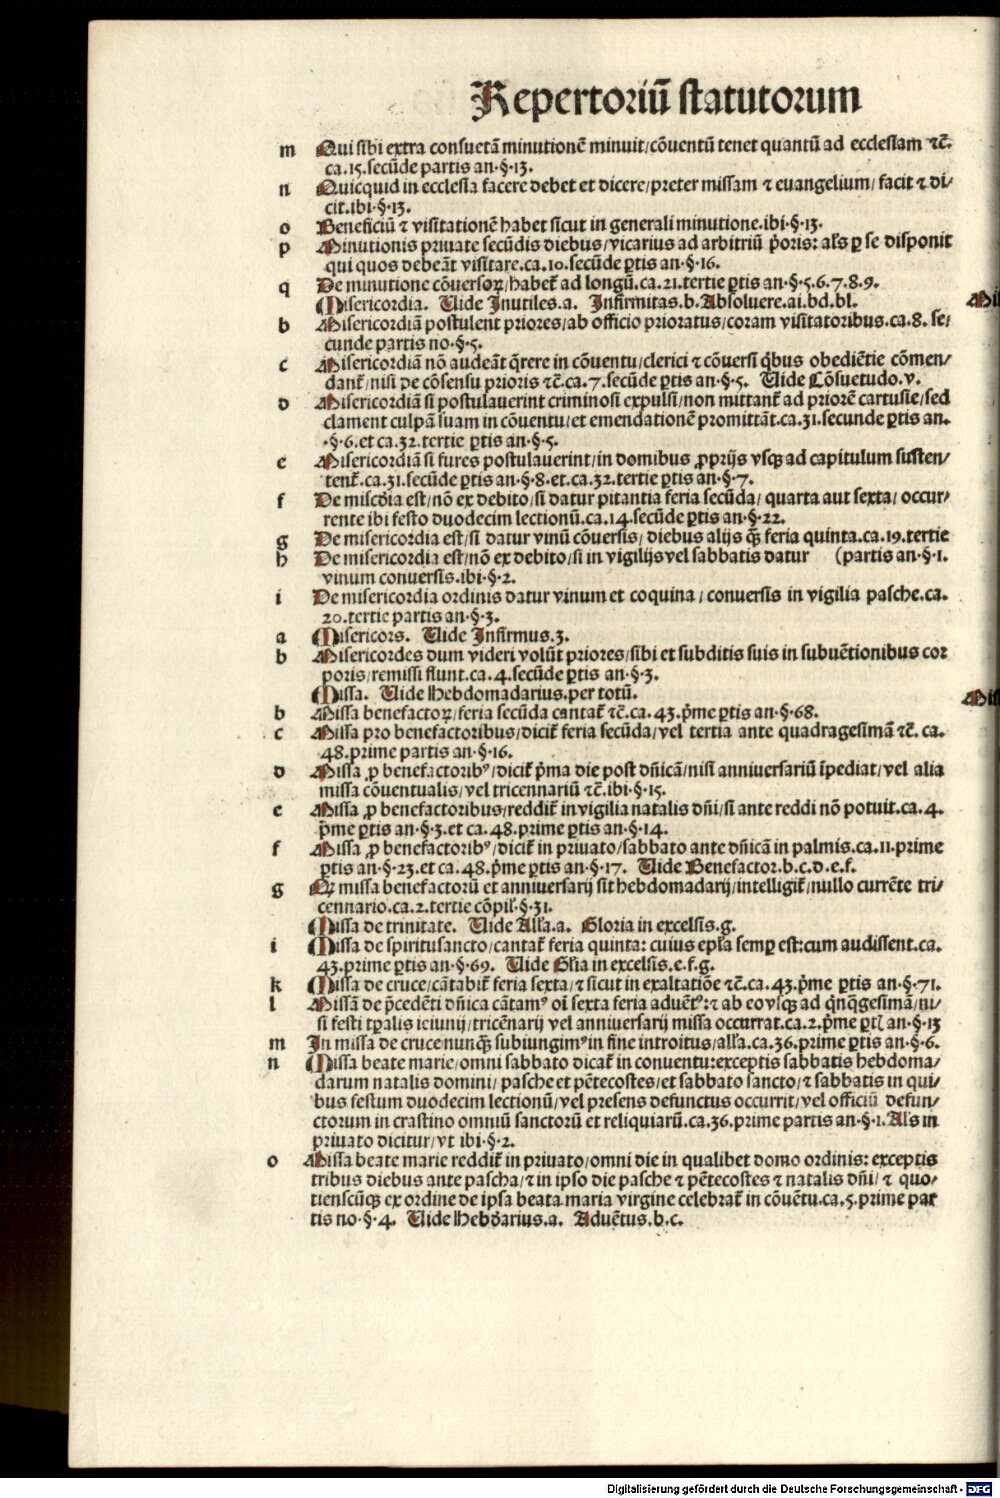 Repertoriū statutorum
m Qui sibi extra consuetā minutionē minuit/cōuentū tenet quantū ad ecclesiam ⁊c̄.
ca.15.secūde partis an·§·13.
n Quicquid in ecclesia facere debet et dicere/preter missam ⁊ euangelium/facit ⁊ di/
cit.ibi·§·13.
o Beneficiū ⁊ visitationē habet sicut in generali minutione.ibi·§·13.
p Minutionis priuate secūdis diebus/vicarius ad arbitriū p̄oris: al's ꝑ se disponit
qui quos debeāt visitare.ca.10.secūde ꝑtis an·§·16.
q De minutione cōuersoꝝ/habet̄ ad longū.ca.21.tertie ꝑtis an·§·5.6.7.8.9.
Misericordia. Uide Inutiles.a. Infirmitas.b.Absoluere.ai.bd.bl.
b Misericordiā postulent priores/ab officio prioratus/coram visitatoribus.ca.8. se/
cunde partis no·§·5.
c Misericordiā nō audeāt q̄rere in cōuentu/clerici ⁊ cōuersi q̄bus obediētie cōmen/
dant̄/nisi de cōsensu prioris ⁊c̄.ca.7.secūde ꝑtis an·§·5. Uide Cōsuetudo.v.
d Misericordiā si postulauerint criminosi expulsi/non mittant̄ ad priorē cartusie/sed
clament culpā suam in cōuentu/et emendationē promittāt.ca.31.secunde ꝑtis an.
·§·6.et ca.32.tertie ꝑtis an·§·5.
e Misericordiā si fures postulauerint/in domibus ꝓprijs vsqꝫ ad capitulum susten/
tent̄.ca.31.secūde ꝑtis an·§·8.et.ca.32.tertie ꝑtis an·§·7.
f De mis̄cdia est/nō ex debito/si datur pitantia feria secūda/ quarta aut sexta/ occur/
rente ibi festo duodecim lectionū.ca.14.secūde ꝑtis an·§·22.
g De misericordia est/si datur vinū cōuersis/ diebus alijs q̄ꝫ feria quinta.ca.19.tertie
h De misericordia est/nō ex debito/si in vigilijs vel sabbatis datur (partis an·§·1.
vinum conuersis.ibi·§·2.
i De misericordia ordinis datur vinum et coquina/ conuersis in vigilia pasche.ca.
20.tertie partis an·§·3.
a Misericors. Uide Infirmus.3.
b Misericordes dum videri volūt priores/sibi et subditis suis in subuētionibus cor
poris/remissi fiunt.ca.4.secūde ꝑtis an·§·3.
Missa. Uide Hebdomadarius.per totū.
b Missa benefactoꝝ/feria secūda cantat̄ ⁊c̄.ca.43.p̄me ꝑtis an·§·68.
c Missa pro benefactoribus/dicit̄ feria secūda/vel tertia ante quadragesimā ⁊c̄. ca.
48.prime partis an·§·16.
d Missa ꝓ benefactoribꝰ/dicit̄ p̄ma die post dn̄icā/nisi anniuersariū īpediat/vel alia
missa cōuentualis/vel tricennariū ⁊c̄.ibi·§·15.
e Missa ꝓ benefactoribus/reddit̄ in vigilia natalis dn̄i/si ante reddi nō potuit.ca.4.
p̄me ꝑtis an·§·3.et ca.48.prime ꝑtis an·§·14.
f Missa ꝓ benefactoribꝰ/dicit̄ in priuato/sabbato ante dn̄icā in palmis.ca.11.prime
ꝑtis an·§·23.et ca.48.p̄me ꝑtis an·§·17. Uide Benefactor.b.c.d.e.f.
g Qꝫ missa benefactorū et anniuersarij sit hebdomadarij/intelligit̄/nullo currēte tri/
cennario.ca.2.tertie cōpil'.§·31.
Missa de trinitate. Uide All'a.a. Gloria in excelsis.g.
i Missa de spiritusancto/cantat̄ feria quinta: cuius epl'a semꝑ est:cum audissent.ca.
43.prime ꝑtis an·§·69. Uide Gl'ia in excelsis.e.f.g.
k Missa de cruce/cātabit̄ feria sexta/⁊ sicut in exaltatiōe ⁊c̄.ca.43.p̄me ꝑtis an·§·71.
l Missā de p̄cedēti dn̄ica cātamꝰ oī sexta feria aduētꝰ:⁊ ab eo vsqꝫ ad q̄nq̄gesimā/ni/
si festi tp̄alis ieiunij/tricēnarij vel anniuersarij missa occurrat.ca.2.p̄me ꝑtꝭ an·§·13
m In missa de cruce nunq̄ꝫ subiungimꝰ in fine introitus/all'a.ca.36.prime ꝑtis an·§·6.
n Missa beate marie/omni sabbato dicat̄ in conuentu:exceptis sabbatis hebdoma/
darum natalis domini/ pasche et pētecostes/et sabbato sancto/⁊ sabbatis in qui/
bus festum duodecim lectionū/vel presens defunctus occurrit/vel officiū defun/
ctorum in crastino omniū sanctorū et reliquiarū.ca.36.prime partis an·§·1.Al's in
priuato dicitur/vt ibi·§·2.
o Missa beate marie reddit̄ in priuato/omni die in qualibet domo ordinis: exceptis
tribus diebus ante pascha/⁊ in ipso die pasche ⁊ pētecostes ⁊ natalis dn̄i/ ⁊ quo/
tienscūqꝫ ex ordine de ipsa beata maria virgine celebrat̄ in cōuētu.ca.5.prime par
tis no·§·4. Uide Hebdarius.a. Aduētus.b.c.
Digitalisierung gefördert durch die Deutsche Forschungsgemeinschaft - DFG